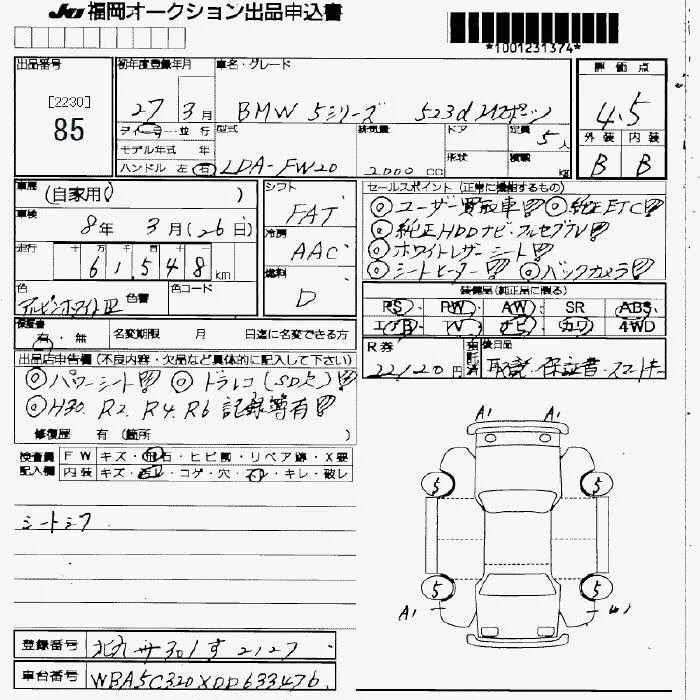 JU 福岡オークション出品申込書
*1001231374*
出品番号 初年度登録年月 車名・グレード 評価点
[2230]
85
27年 3月 BMW 5シリーズ 523d Mスポーツ 4.5
ディーラー・並行 型式 排気量 ドア 定員 5人 外装 内装
モデル年式 年 形状 積載 kg
ハンドル 左 右 LDA-FW20 2000 cc B B
車歴 (自家用) シフト FAT
車検 8年 3月(26日) 冷房 AAC
走行 十 万 千 百 十 一
61,548 km 燃料 D
色 アルピンホワイトIII 色替 色コード
セールスポイント (正常に機能するもの)
◎ユーザー買取車!! ◎純正ETC!!
◎純正HDDナビ・フルセグTV!!
◎ホワイトレザーシート!!
◎シートヒーター!! ◎バックカメラ!!
装備品(純正品に限る)
PS・PW・AW・SR・ABS
エアB・TV・ナビ・カワ・4WD
保証書 有・無 名変期限 月 日迄に名変できる方
R券 22,120円 預託済 後日品 取説・保証書・スマートキー
出品店申告欄 (不良内容・欠品など具体的に記入して下さい)
◎パワーシート!! ◎ドラレコ(SD欠)!!
◎H30. R2. R4. R6 記録簿有!!
修復歴 有 (箇所 )
検査員記入欄 FW キズ・飛石・ヒビ割・リペア跡・X要
内装 キズ・コゲ・穴・キレ・破レ
シートシワ
A1 A1
5 5
5 5
A1
登録番号 北九州 301 す 2127
車台番号 WBA5C320X0D633476